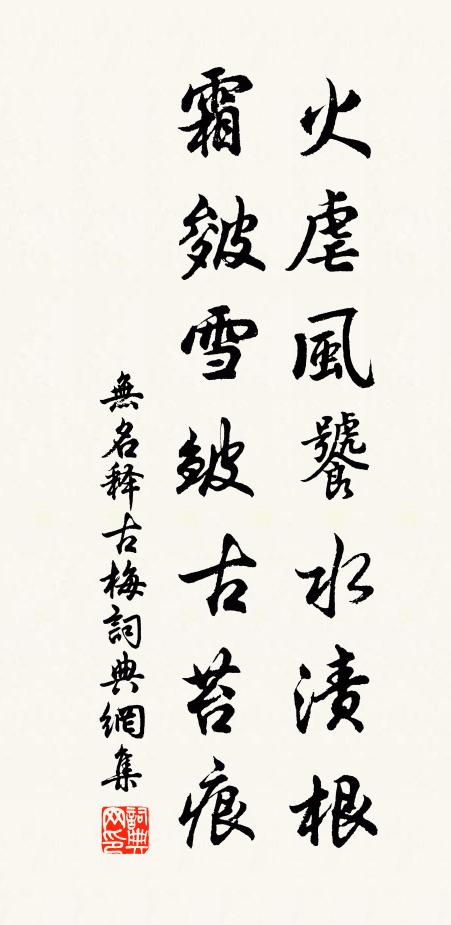 火虐風饕水漬根
霜皴雪皴古苔痕
無名释古梅詞典網集
詞典网印